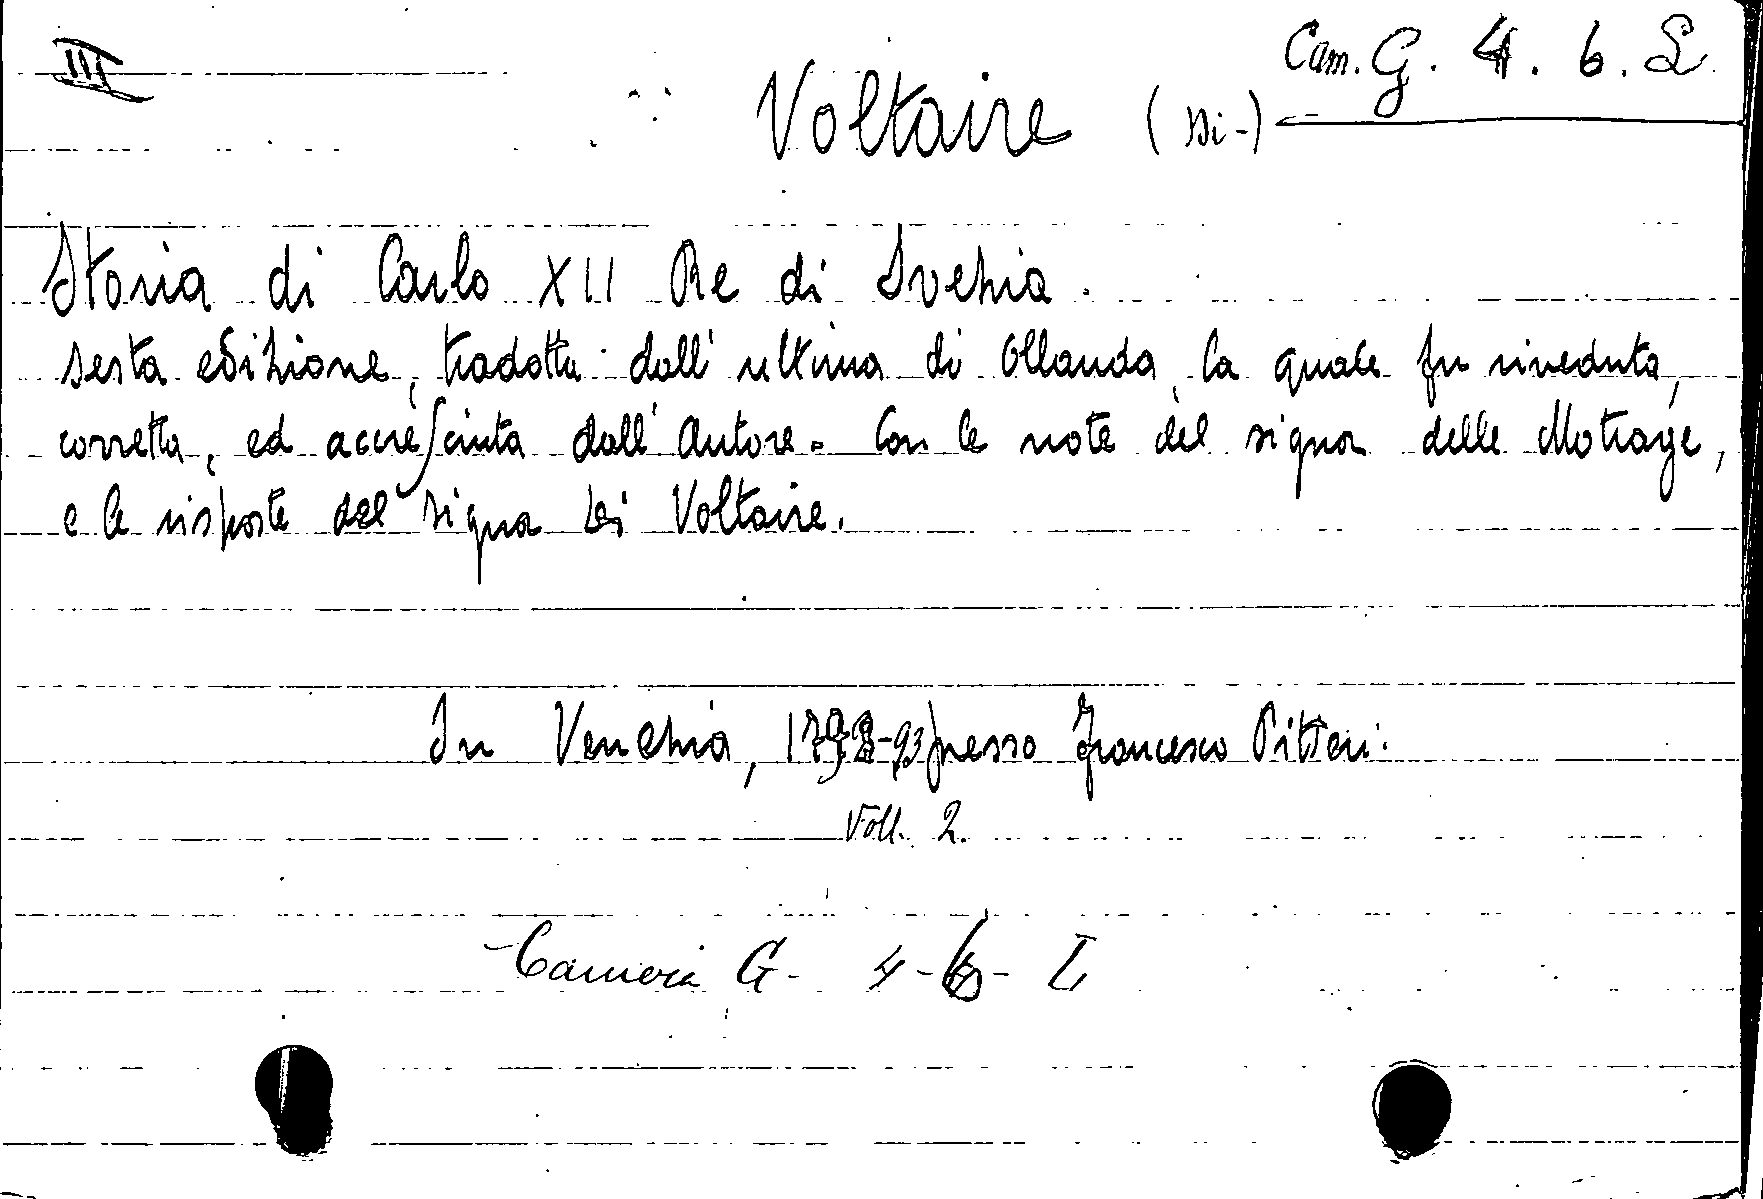 III
Cam. G. 4. 6. L
Voltaire (di-)
Storia di Carlo XII Re di Svezia.
sesta edizione, tradotta dall'ultima di Ollanda, la quale fu riveduta,
corretta, ed accresciuta dall'Autore. Con le note del signor delle Motraye,
e le risposte del signor di Voltaire.
In Venezia, presso Francesco Pitteri.
Voll. 2.
Camera G- 4-6- L